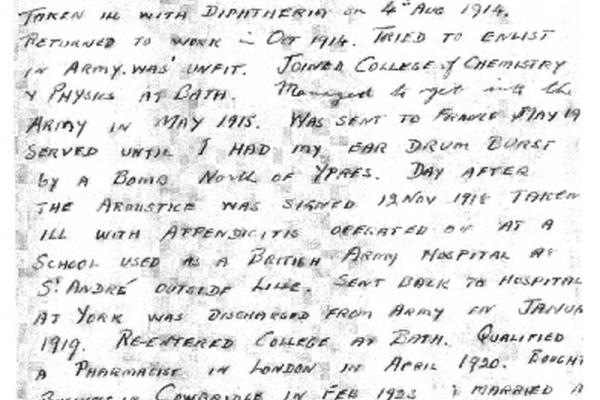 TAKEN ILL WITH DIPHTHERIA on 4th AUG 1914.
RETURNED TO WORK in OCT 1914. TRIED TO ENLIST
IN ARMY. WAS UNFIT. JOINED COLLEGE of CHEMISTRY
& PHYSICS AT BATH. Managed to get into the
ARMY IN MAY 1915. WAS SENT TO FRANCE MAY 19
SERVED UNTIL I HAD MY EAR DRUM BURST
by A BOMB North of YPRES. DAY AFTER
THE ARMISTICE WAS SIGNED 12 NOV 1918 TAKEN
ILL WITH APPENDICITIS OPERATED ON AT A
SCHOOL USED AS A BRITISH ARMY HOSPITAL AT
St ANDRÉ OUTSIDE LILLE. SENT BACK TO HOSPITAL
AT YORK WAS DISCHARGED FROM ARMY IN JANUA
1919. RE-ENTERED COLLEGE AT BATH. QUALIFIED
A PHARMACIST IN LONDON IN APRIL 1920. BOUGHT
BUSINESS IN COWBRIDGE IN FEB 1923 MARRIED A